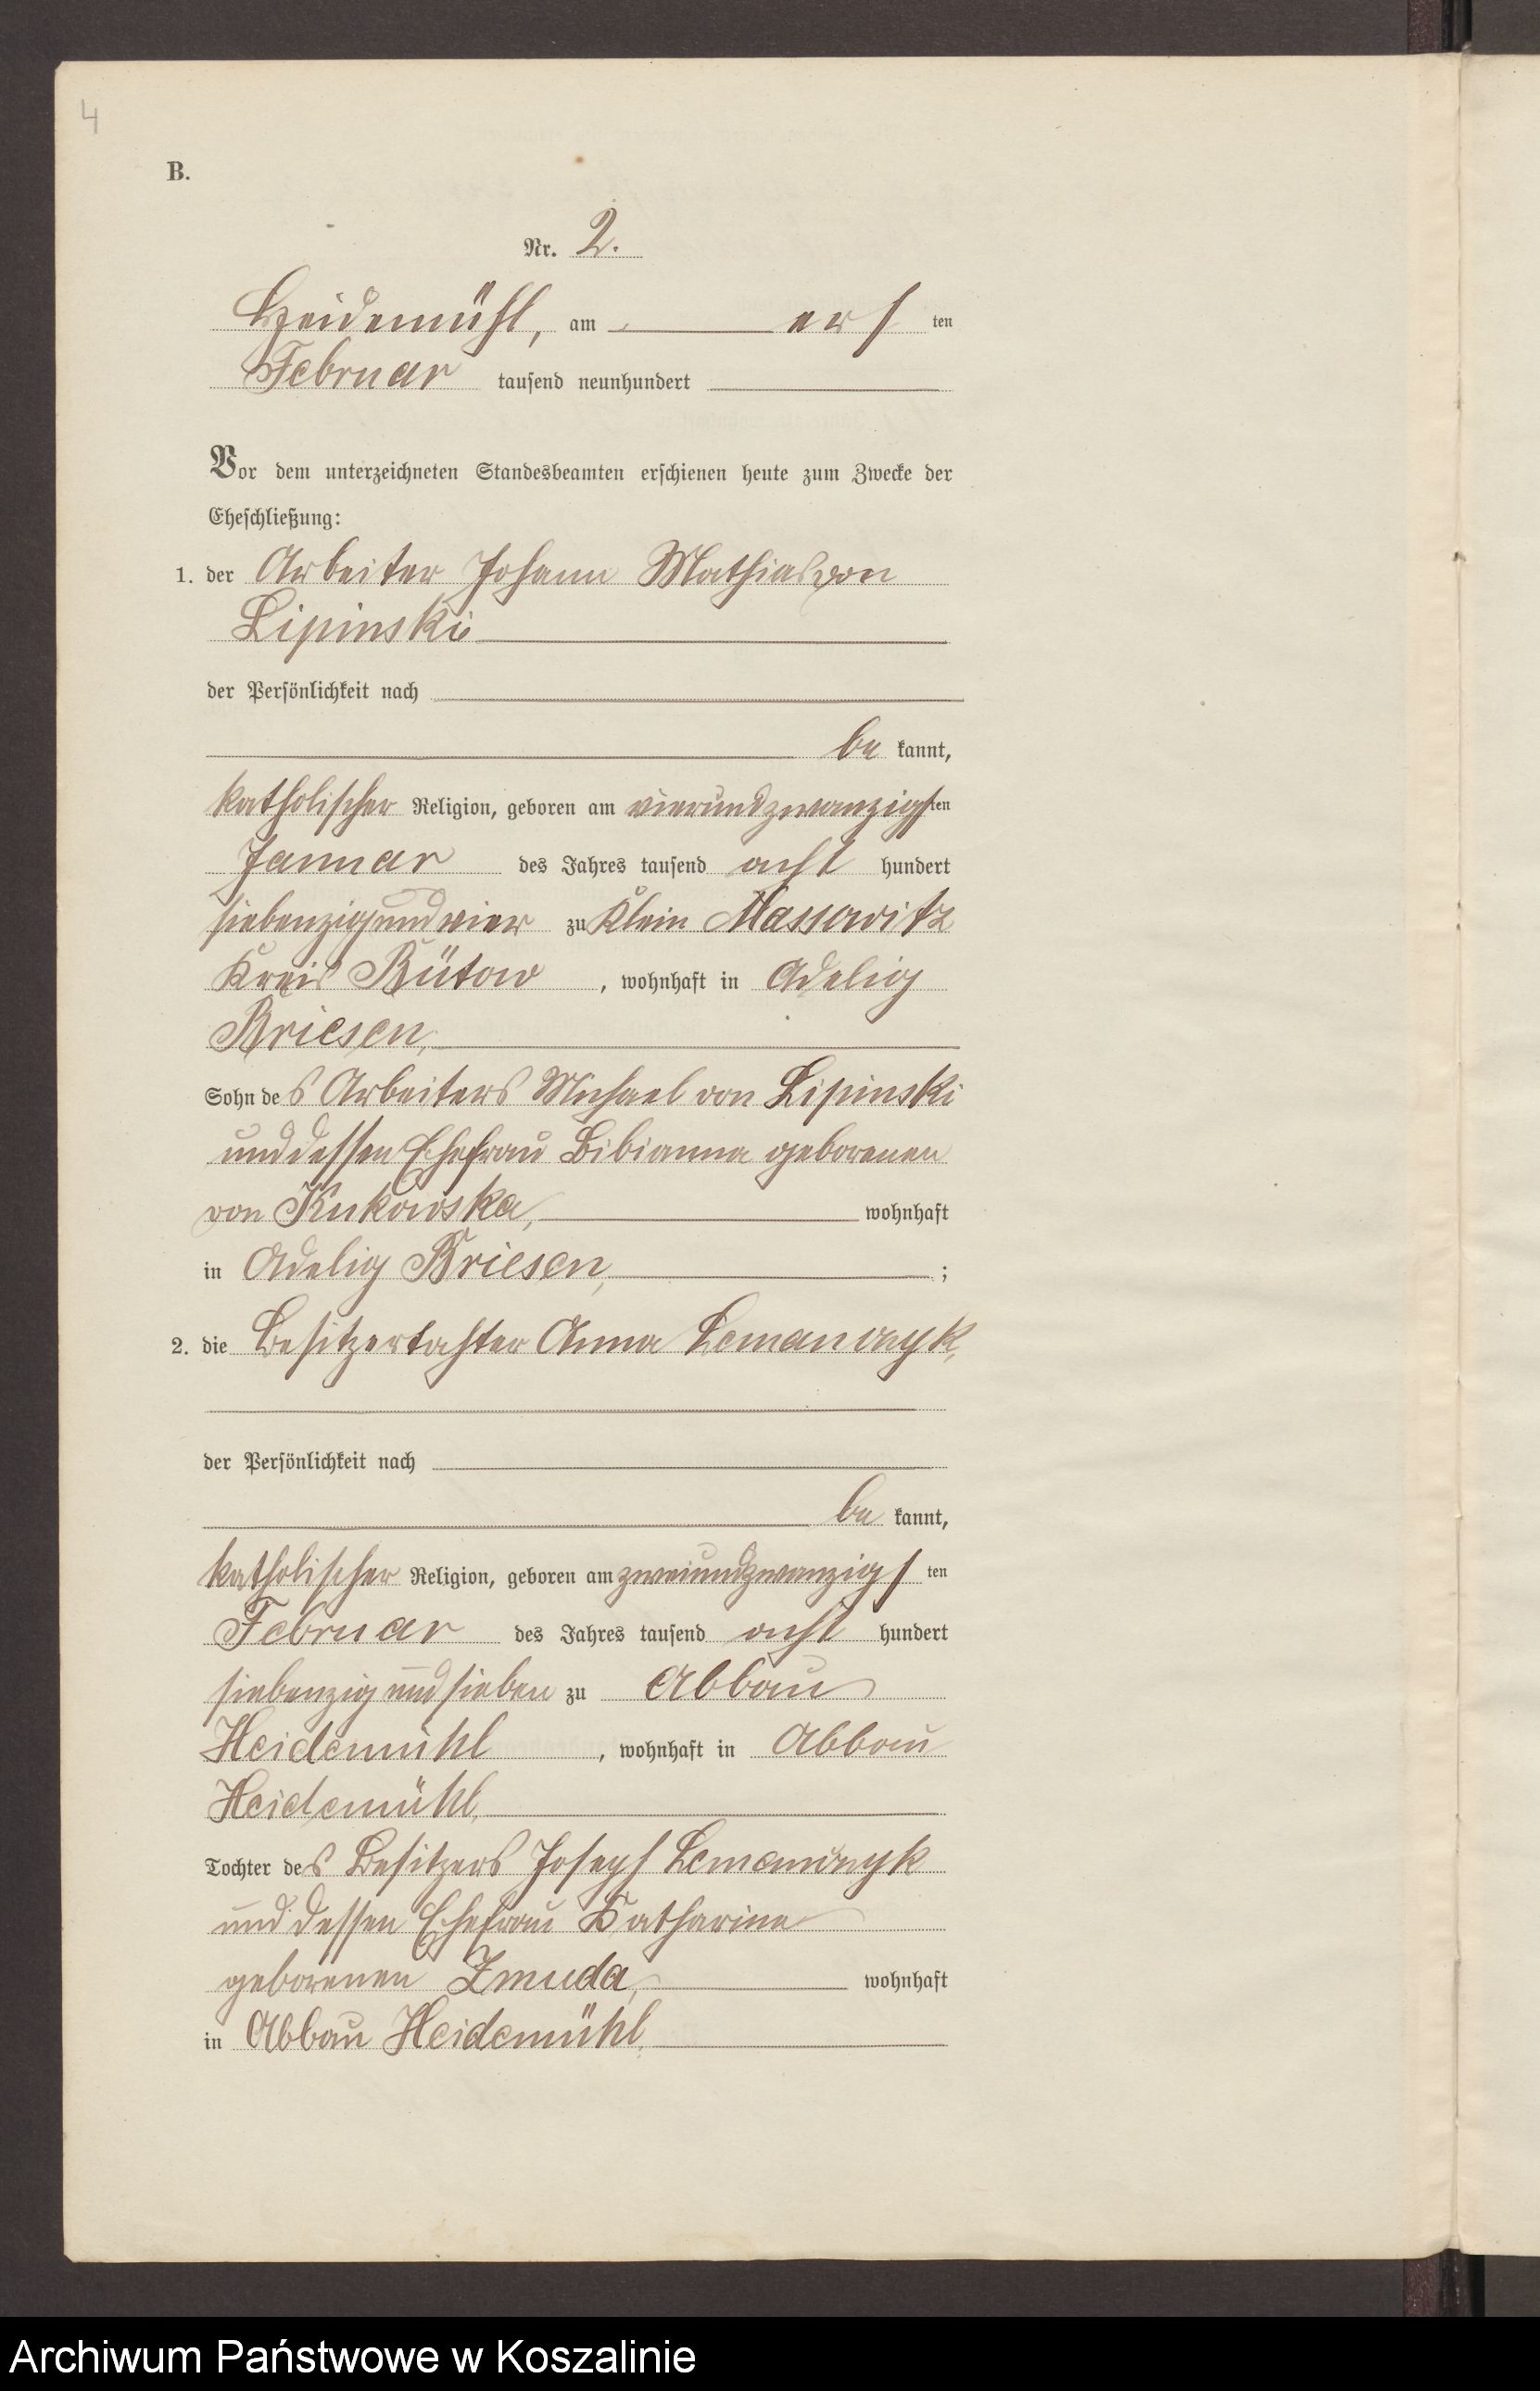 4
B.
Nr. 2.
Heidemühl, am erſten
Februar tauſend neunhundert
Vor dem unterzeichneten Standesbeamten erſchienen heute zum Zwecke der
Eheſchließung:
1. der Arbeiter Johann Mathias von
Lipinski
der Perſönlichkeit nach
be kannt,
katholiſcher Religion, geboren am vierundzwanzigſten
Januar des Jahres tauſend acht hundert
ſiebenzig und vier zu Klein Massowitz
Kreis Bütow, wohnhaft in Adelig
Briesen,
Sohn des Arbeiters Michael von Lipinski
und deſſen Ehefrau Bibianna geborenen
von Kukowska, wohnhaft
in Adelig Briesen, ;
2. die Beſitzertochter Anna Lemanczyk,
der Perſönlichkeit nach
be kannt,
katholiſcher Religion, geboren am zweiundzwanzigſten
Februar des Jahres tauſend acht hundert
ſiebenzig und ſieben zu Abbau
Heidemühl, wohnhaft in Abbau
Heidemühl,
Tochter des Beſitzers Joseph Lemanczyk
und deſſen Ehefrau Katharina
geborenen Zmuda, wohnhaft
in Abbau Heidemühl,
Archiwum Państwowe w Koszalinie